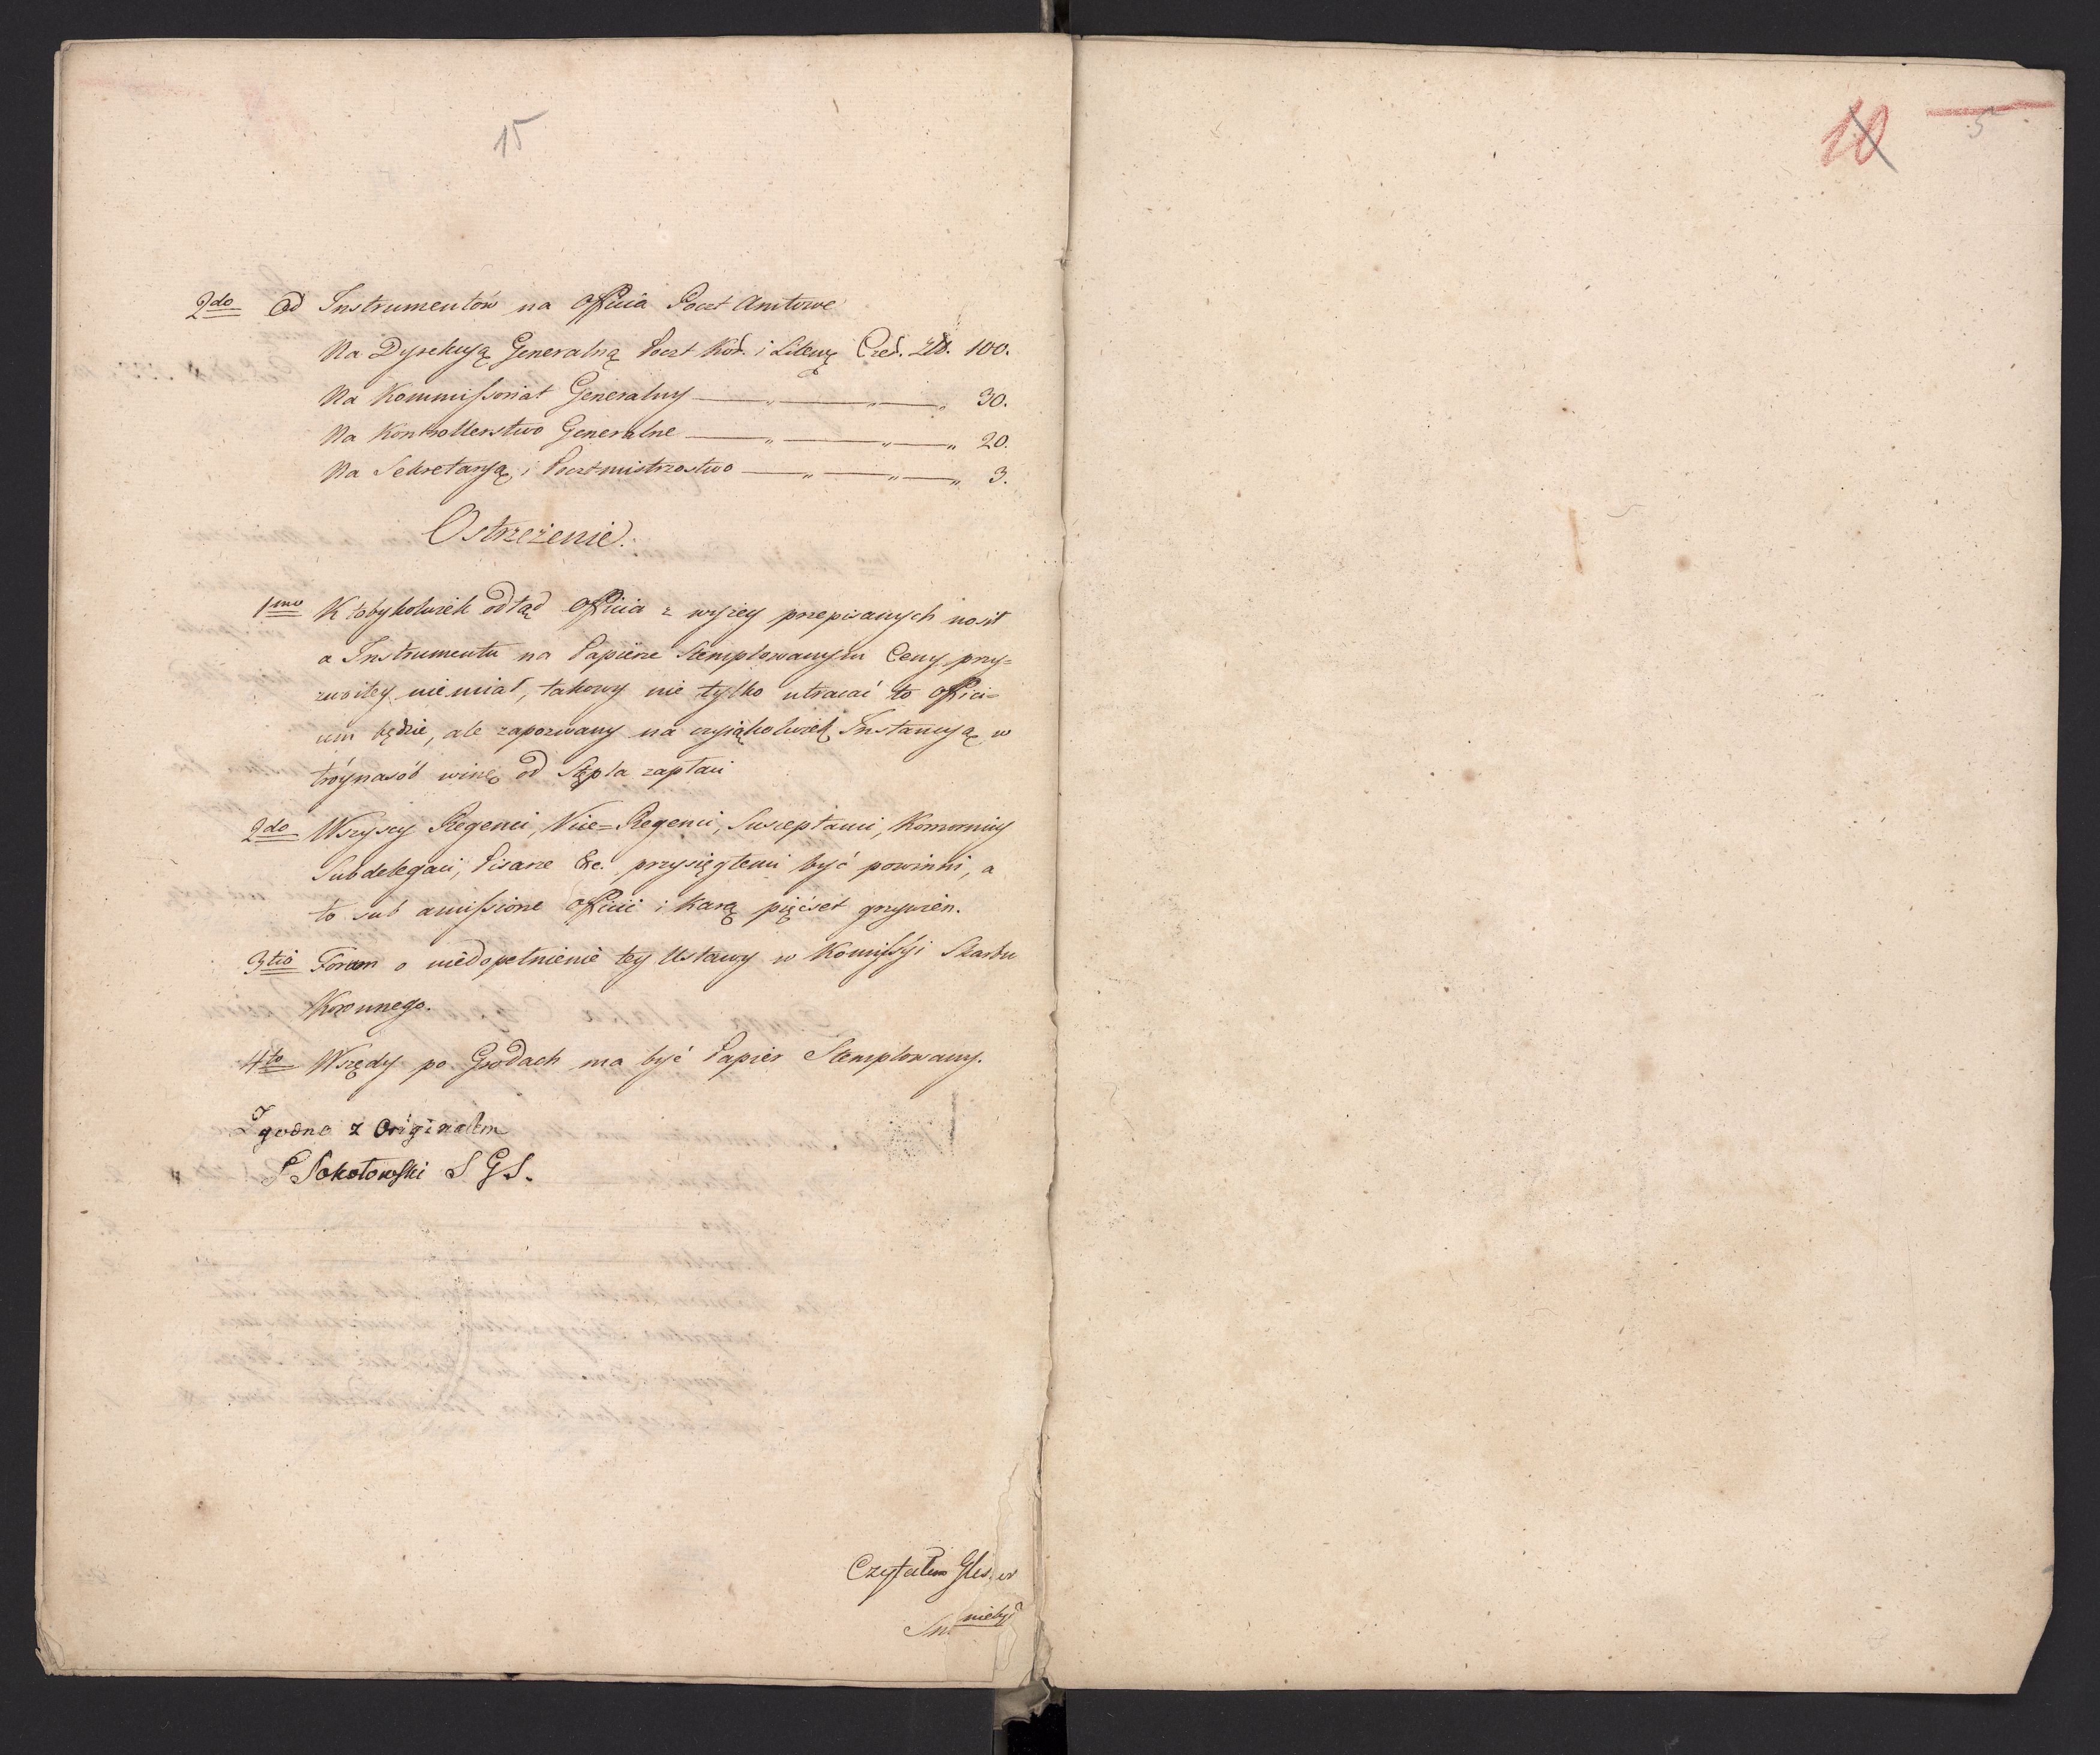 15
2do Od Instrumentów na Officia Poczt Amtowe
Na Dyrekcyą Generalną Poczt Kor. i Litewę Czeł. Zł. 100.
Na Kommissoriat Generalny — „ — „ — „ 30.
Na Kontrollerstwo Generalne — „ — „ — „ 20.
Na Sekretaryą i Pocztmistrzostwo — „ — „ — „ 3.
Ostrzeżenie.
1mo Ktobykolwiek odtąd Officia z wyżey przepisanych nosił
a Instrumentu na Papierze Stemplowanym Ceny przy=
zwoitey nie miał, takowy nie tylko utracać to Offici=
um będzie, ale zapozwany na czyiąkolwiek Instancyą w
tróynasób winę od Stępla zapłaci
2do Wszyscy Regenci, Vice=Regenci, Susceptanci, Komornicy
Subdelegaci, Pisarze &c. przysięgłemi być powinni, a
to sub amissione Officii i Karą pięćset grzywien.
3tio Forum o niedopełnienie tey Ustawy w Komissyi Skarbu
Koronnego.
4to Wszędy po Grodach ma być Papier Stemplowany.
Zgodno z Originałem
P Sokołowski S G S.
Czytałem
10
5